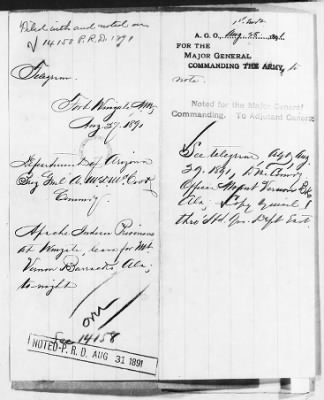 Filed with and noted on
14158 P.R.D. 1891
Telegram.
Fort Wingate, N.M.
Aug 29, 1891
Department of Arizona
Brig Genl A. McD. McCook
Comm'g
Apache Indian Prisoners
at Wingate, leave for Mt.
Vernon Barracks, Ala,
to-night
over
See 14158
NOTED-P. R. D. AUG 31 1891
A. G. O., Aug. 1891.
FOR THE
MAJOR GENERAL
COMMANDING THE ARMY, to
note.
Noted for the Major General
Commanding. To Adjutant General
See telegram Aug
29, 1891, to Comdg
Officer Mount Vernon Bks
Ala. Copy
thro' Hd. Qrs. Dept East.